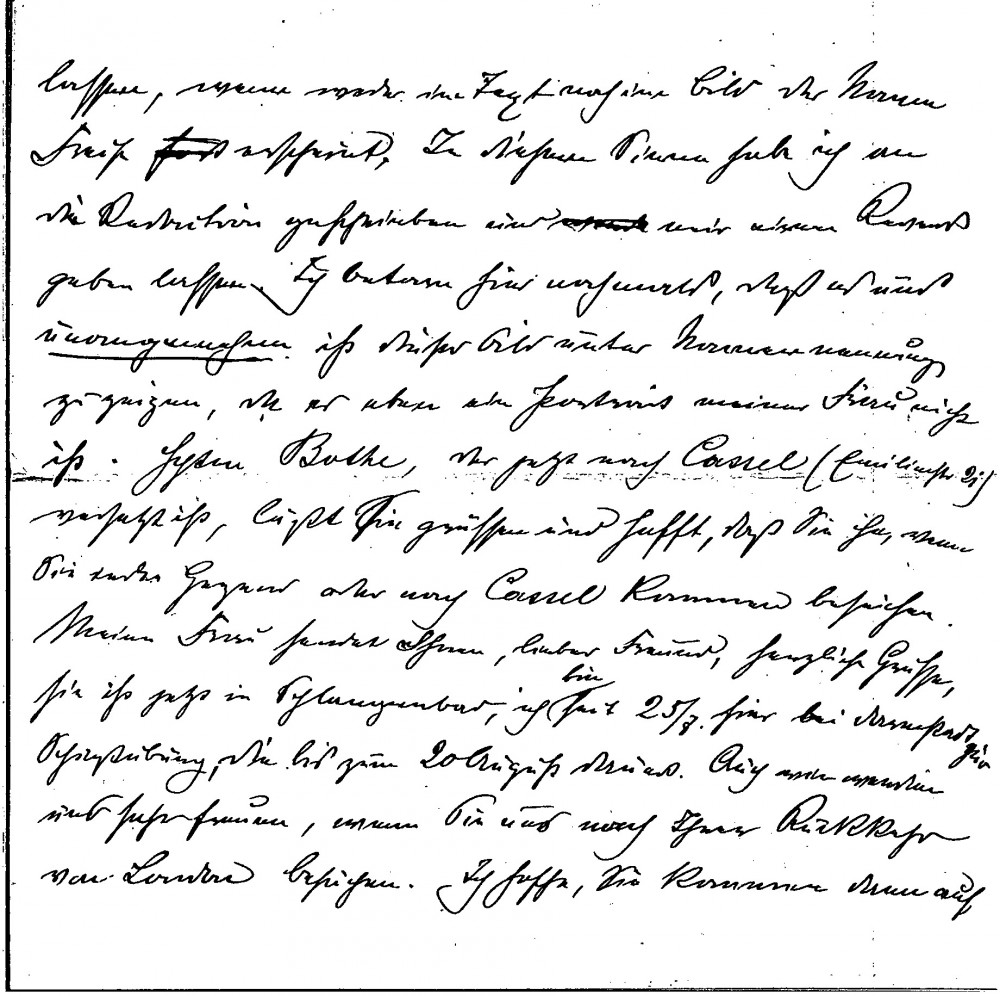 lassen, wenn weder im Text noch im Bild der Name
Freih erscheint. In diesem Sinne habe ich an
die Redaction geschrieben und mir einen Revers
geben lassen. Ich betone hier nochmals, daß es uns
unangenehm ist dieses Bild unter Namennennung
zu zeigen, da es eben ein Portrait meiner Frau nicht
ist. Bothe, der jetzt nach Cassel (Emilienstr 21)
versetzt ist, läßt Sie grüssen und hofft, daß Sie ihn, wenn
Sie in der Gegend oder nach Cassel kommen besuchen.
Meine Frau sendet Ihnen, lieber Freund, herzliche Grüsse,
sie ist jetzt in Schlangenbad, ich bin seit 25/7. hier bei Darmstadt zur
Schießübung, die bis zum 20 August dauert. Auch wir werden
uns sehr freuen, wenn Sie uns nach Ihrer Rückkehr
von London besuchen. Ich hoffe, Sie kommen dann auch